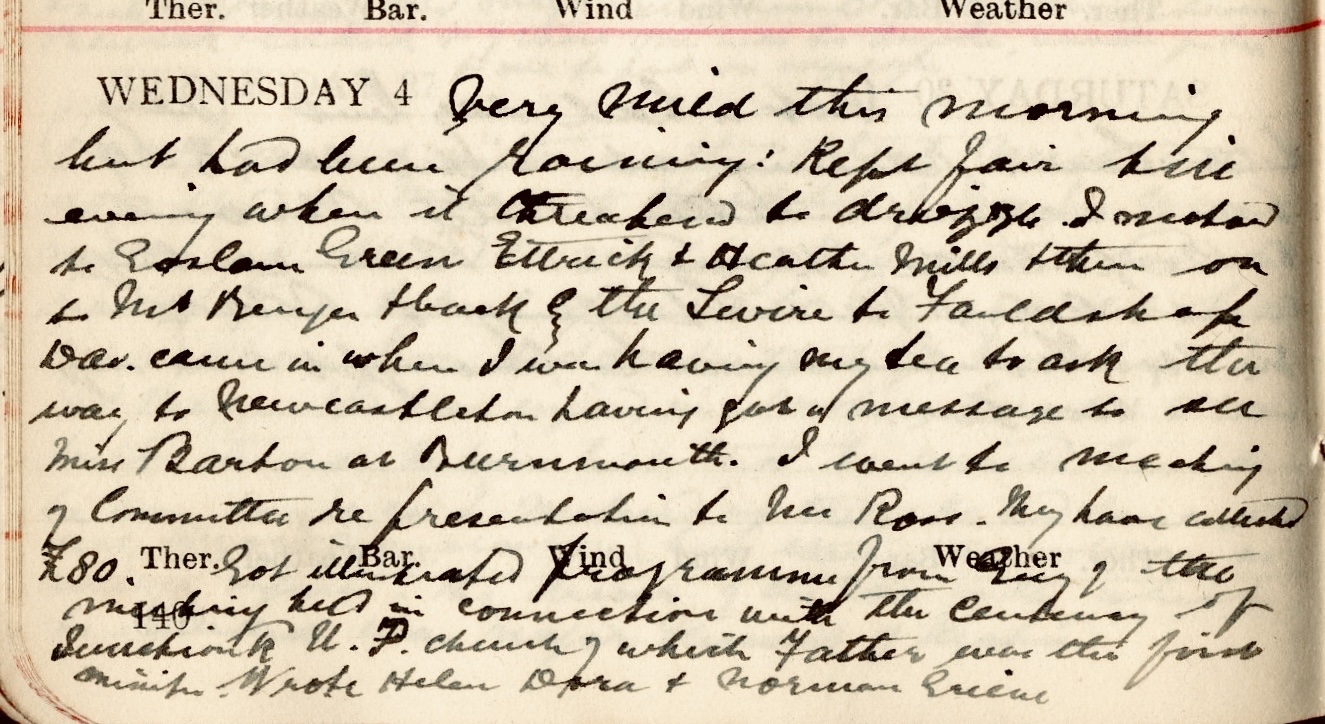 Ther. Bar. Wind Weather
WEDNESDAY 4 Very mild this morning
but had been raining: Kept fair till
evening when it threatened to drizzle. I motored
to Green Ettrick & Heather Mills & then on
to Mt Benger & back & the to Fauldshope
Dav. came in when I was having my tea to ask the
way to Newcastleton having got a message to see
Miss Barton at Burnmouth. I went to meeting
of Committee re presentation to Mr Ross. They have collected
£80. Ther. Bar. Wind Weather Got illustrated programme from of the
meeting held in connection with the centenary of
140
U. P. church of which Father was the first
minister. Wrote Helen Dora & Norman